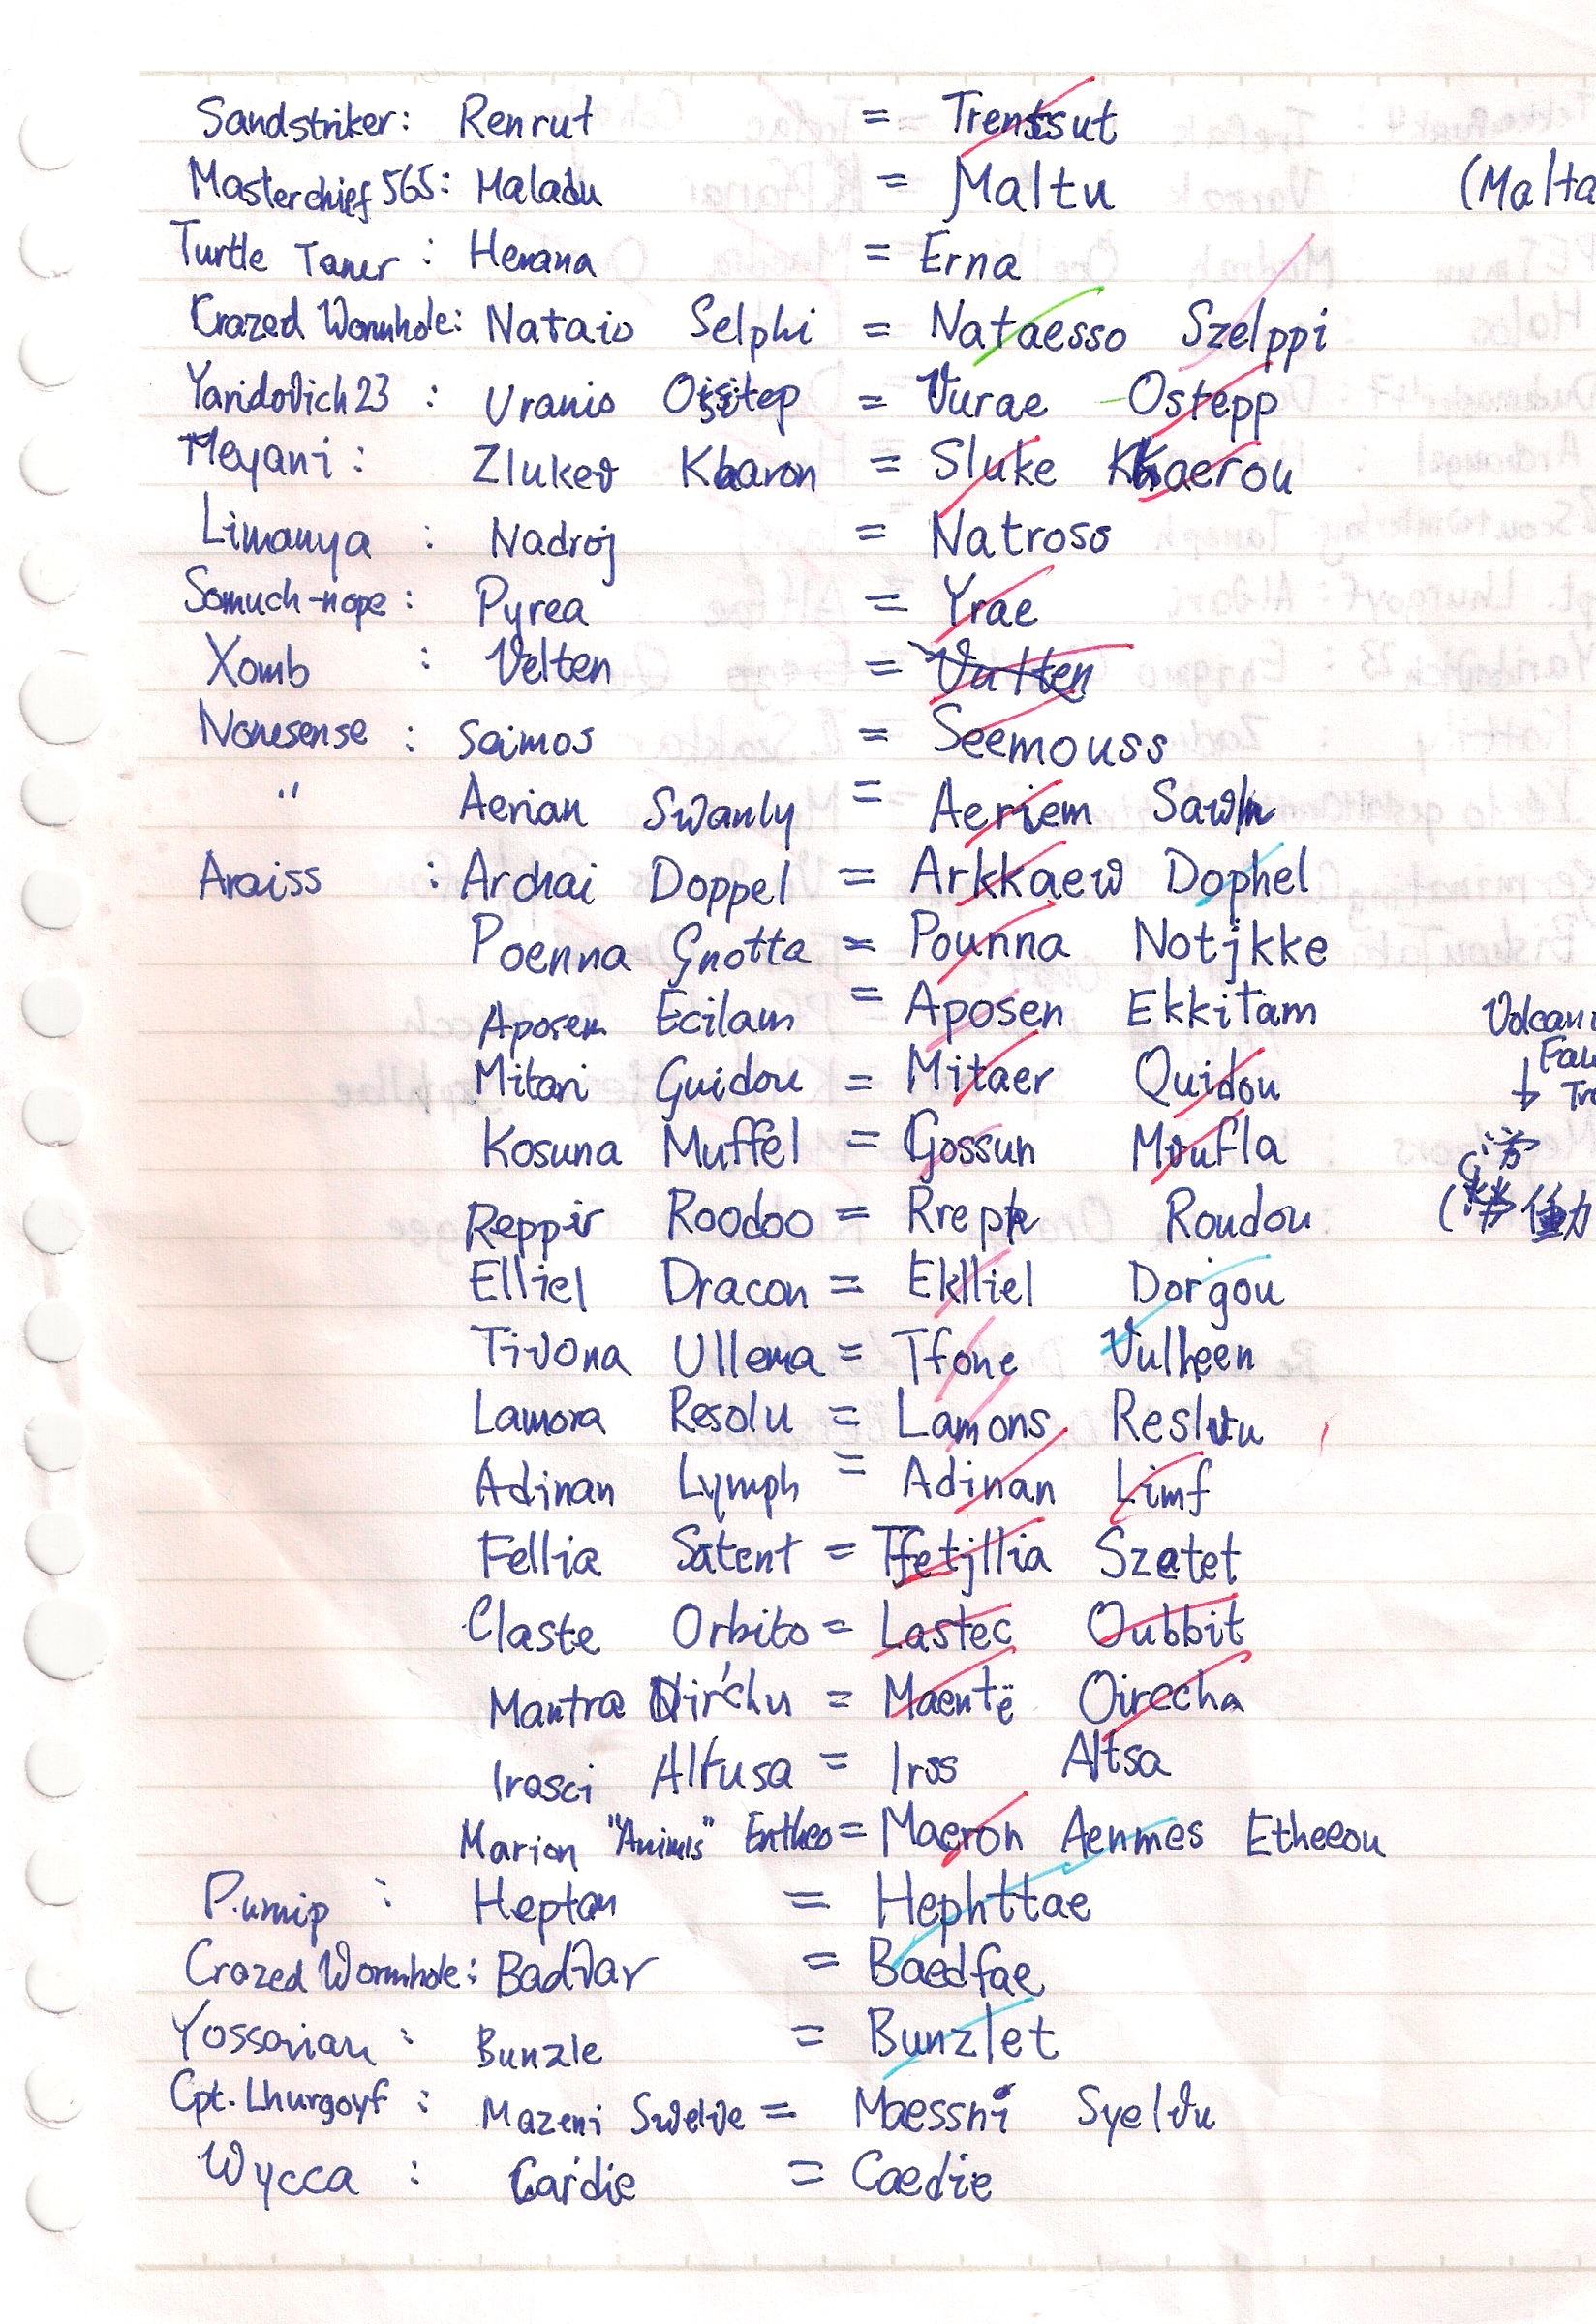 Sandstriker: Renrut = Trentssut
Masterchief 565: Maladu = Maltu (Malta
Turtle Tamer : Hemana = Erna
Crazed Wormhole: Nataio Selphi = Nataesso Szelppi
Yaridovich23 : Uranio Ositep = Vurae Ostepp
Meyani: Zlukev Kharon = Sluke Khaerou
Limanya : Nadroj = Natross
Somuch-nope : Pyrea = Yrae
Xomb : Velten = Vulten
Nonesense : Seimos = Seemouss
" Aerian Swanly = Aeriem Sawln
Araiss : Archai Doppel = Arkkaew Dophel
Poenna Gnotta = Pounna Notjkke
Aposem Ecilam = Aposen Ekkitam Volcan
Mitari Guidou = Mitaer Quidou
Kosuna Muffel = Gossun Mvufla
Reppir Roodoo = Rrepp Roudou
Elliel Dracon = Eklliel Dorgou
Tivona Ullema = Tfone Vulheen
Lamora Resolu = Lamons Reslvu
Adinan Lymph = Adinan Limf
Fellia Satent = Tfetjllia Szatet
Claste Orbito = Lastec Oubbit
Mantra Nirchu = Maentë Oirecha
Irasci Altusa = Irss Altsa
Marion "Animis" Entheo = Maeron Aenmes Etheeou
P.umip : Heptam = Hephttae
Crazed Wormhole: Badvar = Baedfae
Yossarian : Bunzle = Bunzlet
Cpt. Lhurgoyf : Mazeni Swelve = Maessni Syelvu
Wycca : Cardie = Caedie